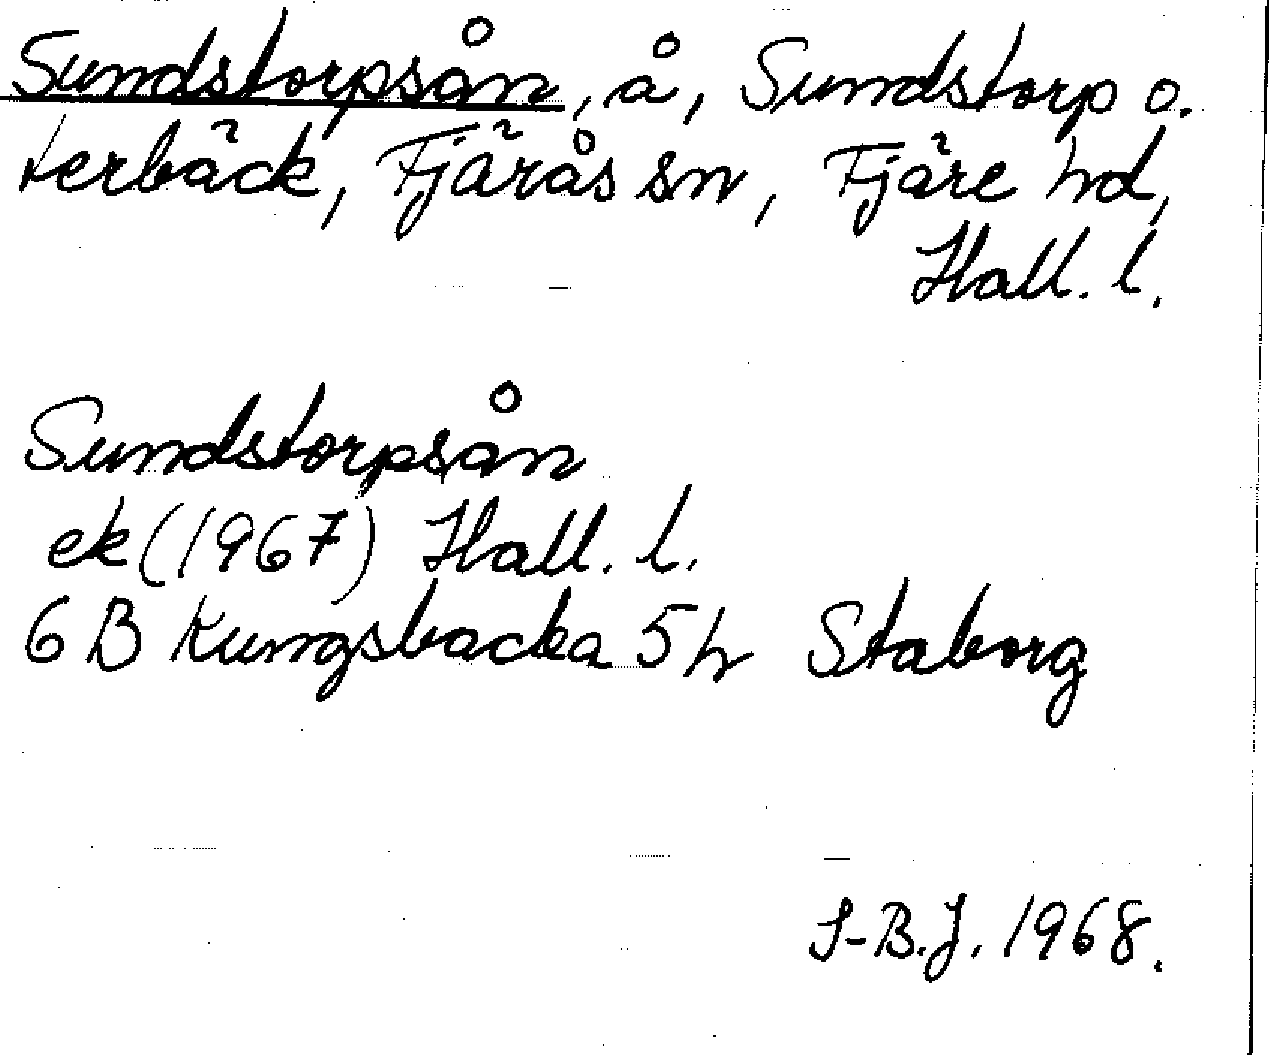 Sundstorpsån, å, Sundstorp o.
terbäck, Fjärås sn, Fjäre hd,
Hall. l.
Sundstorpsån
ek (1967) Hall. l.
6 B Kungsbacka 5 h Staborg
S-B.J. 1968.